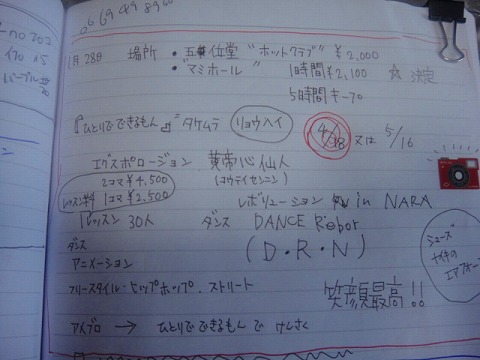 no 703
170 15
パープル
06 6949 89
1月28日 場所 ・五位堂 "ホットクラブ" ¥2,000
・"マミホール" 1時間¥2,100 ☆決定
5時間キープ
『ひとりでできるもん』 タケムラ リョウヘイ 4/18 又は 5/16
エグスポロージョン 黄帝心仙人
(コウテイセンニン)
2コマ¥4,500
レッスン料 1コマ¥2,500
レボリューション in NARA
1レッスン 30人 ダンス DANCE Robot
(D・R・N)
ダンス
アニメーション
シューズ
ナイキの
エアフォー
フリースタイル・ヒップホップ.ストリート
笑顔最高!!
アメブロ → ひとりでできるもん で けんさく